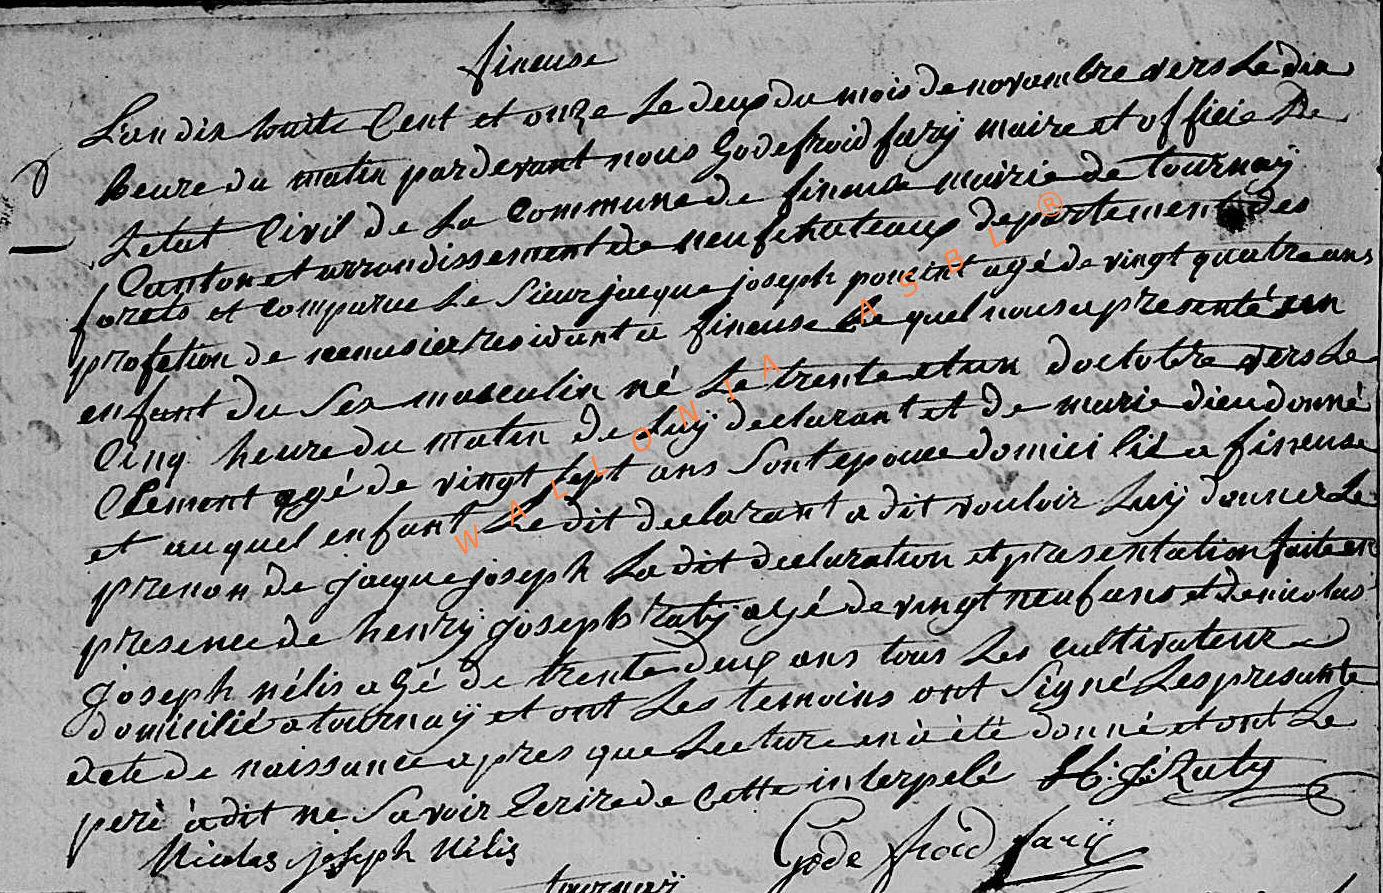 fineuse
L'an dix huite Cent et onze Le deux du mois de novambre vers Lé dix
heure du matin pardevant nous Godefroid fary maire et officié De
Letat Civil de La Commune de fineuse mairie de tournaÿ
Canton et arrondissement de neufchateaux departement des
forets et comparue Le Sieur jacque joseph poncint agé de vingt quatre ans
profetion de menusier residant a fineuse Le quel nous a presenté un
enfant du Sex masculin né Le trente et un d'octobre vers Le
Cinq heure du matin de Luÿ declarant et de marie dieudonné
Clement agé de vingt sept ans Sont epouce domicilié a fineuse
et auquel enfant Le dit declarant a dit vouloir Luÿ donner Le
prenon de jacque joseph La dit declaration et presentation faite en
presence de henrÿ joseph ratÿ agé de vingt neuf ans et de nicolas
joseph nélis agé de trente deux ans tous Les cultivateur
domicilié a tournaÿ et ont Les temoins ont Signé Les presante
dete de naissance apres que Lecture en à été donné et ont Le
peré à dit ne Savoir Ecrire de Cette interpelé H. J. Raty
Nicolas joseph Nélis Gode froid farÿ
tournaÿ
WALLONIA ASBL ®